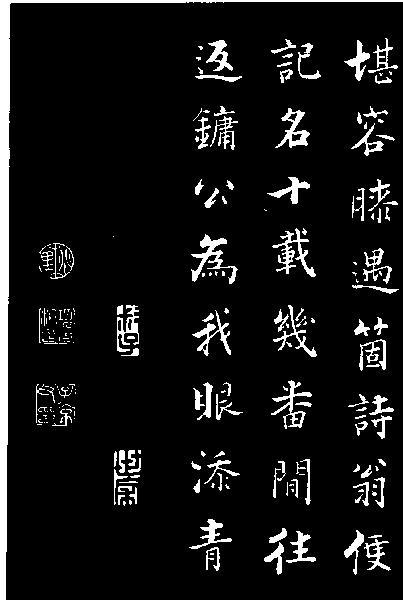 堪容膝遇箇詩翁便
記名十載幾番間往
返鏞公為我眼添青